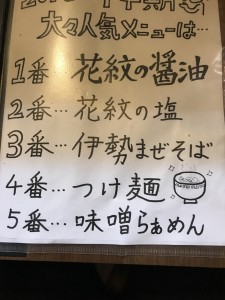 大々人気メニューは…
1番…花紋の醤油
2番…花紋の塩
3番…伊勢まぜそば
4番…つけ麺
5番…味噌らぁめん